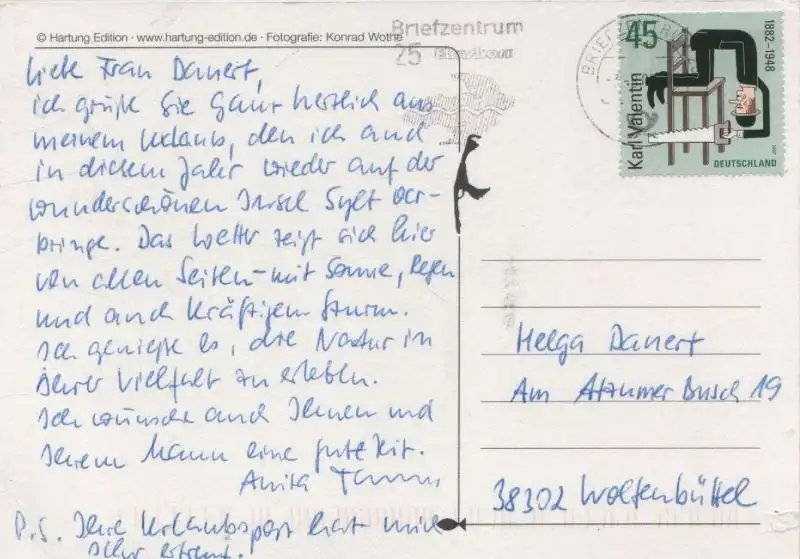 © Hartung Edition · www.hartung-edition.de · Fotografie: Konrad Wothe
Briefzentrum
25
45
1882–1948
Karl Valentin
DEUTSCHLAND
Liebe Frau Danert,
ich grüße Sie ganz herzlich aus
meinem Urlaub, den ich auch
in diesem Jahr wieder auf der
wunderschönen Insel Sylt ver-
bringe. Das Wetter zeigt sich hier
von allen Seiten – mit Sonne, Regen
und auch kräftigem Sturm.
Ich genieße es, die Natur in
ihrer Vielfalt zu erleben.
Ich wünsche auch Ihnen und
Ihrem Mann eine gute Zeit.
Anita
P.S. Ihre Urlaubspost hat mich
sehr erfreut.
Helga Danert
Am Atzumer Busch 19
38302 Wolfenbüttel